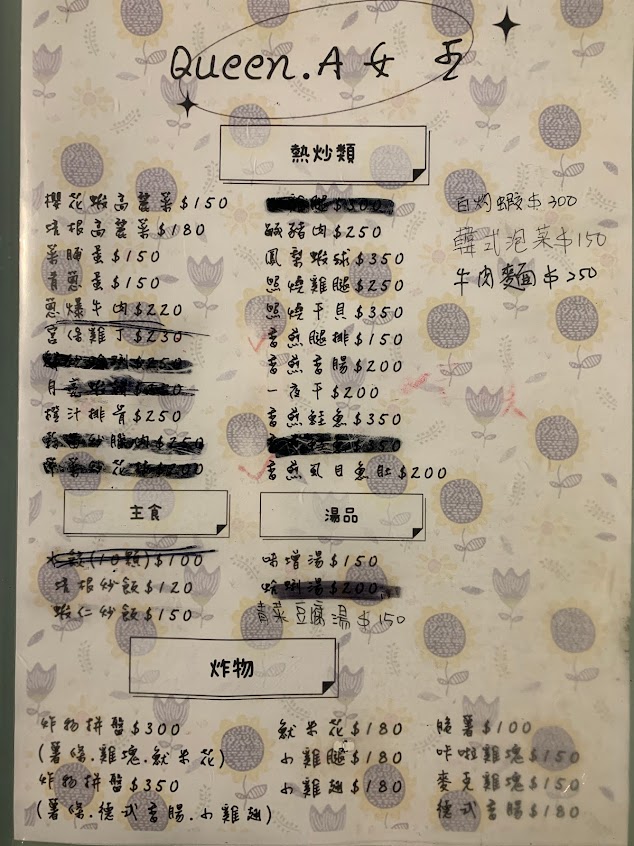 Queen.A 女王
熱炒類
櫻花蝦高麗菜$150
培根高麗菜$180
菜脯蛋$150
青蔥蛋$150
蔥爆牛肉$220
宮保雞丁$230
$250
橙汁排骨$250
$250
$200
鹹豬肉$250
鳳梨蝦球$350
照燒雞腿$250
照燒干貝$350
香煎腿排$150
香煎香腸$200
一夜干$200
香煎鮭魚$350
$350
香煎虱目魚肚$200
白灼蝦$300
韓式泡菜$150
牛肉麵$250
主食
水餃(10顆)$100
培根炒飯$120
蝦仁炒飯$150
湯品
味增湯$150
蛤蜊湯$200
青菜豆腐湯$150
炸物
炸物拼盤$300
(薯條.雞塊.魷米花)
炸物拼盤$350
(薯條.德式香腸.小雞翅)
魷米花$180
小雞腿$180
小雞翅$180
脆薯$100
咔啦雞塊$150
麥克雞塊$150
德式香腸$180